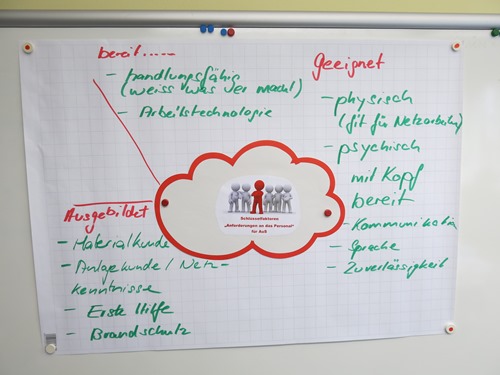 bereit......
- handlungsfähig
(weiss was der macht)
- Arbeitstechnologie
geeignet
- physisch
(fit für Netzarbeiten)
- psychisch
mit Kopf
bereit
- Kommunikation
- Sprache
- Zuverlässigkeit
Schlüsselfaktoren
„Anforderungen an das Personal"
für AuS
Ausgebildet
- Materialkunde
- Anlagekunde / Netz-
kenntnisse
- Erste Hilfe
- Brandschutz